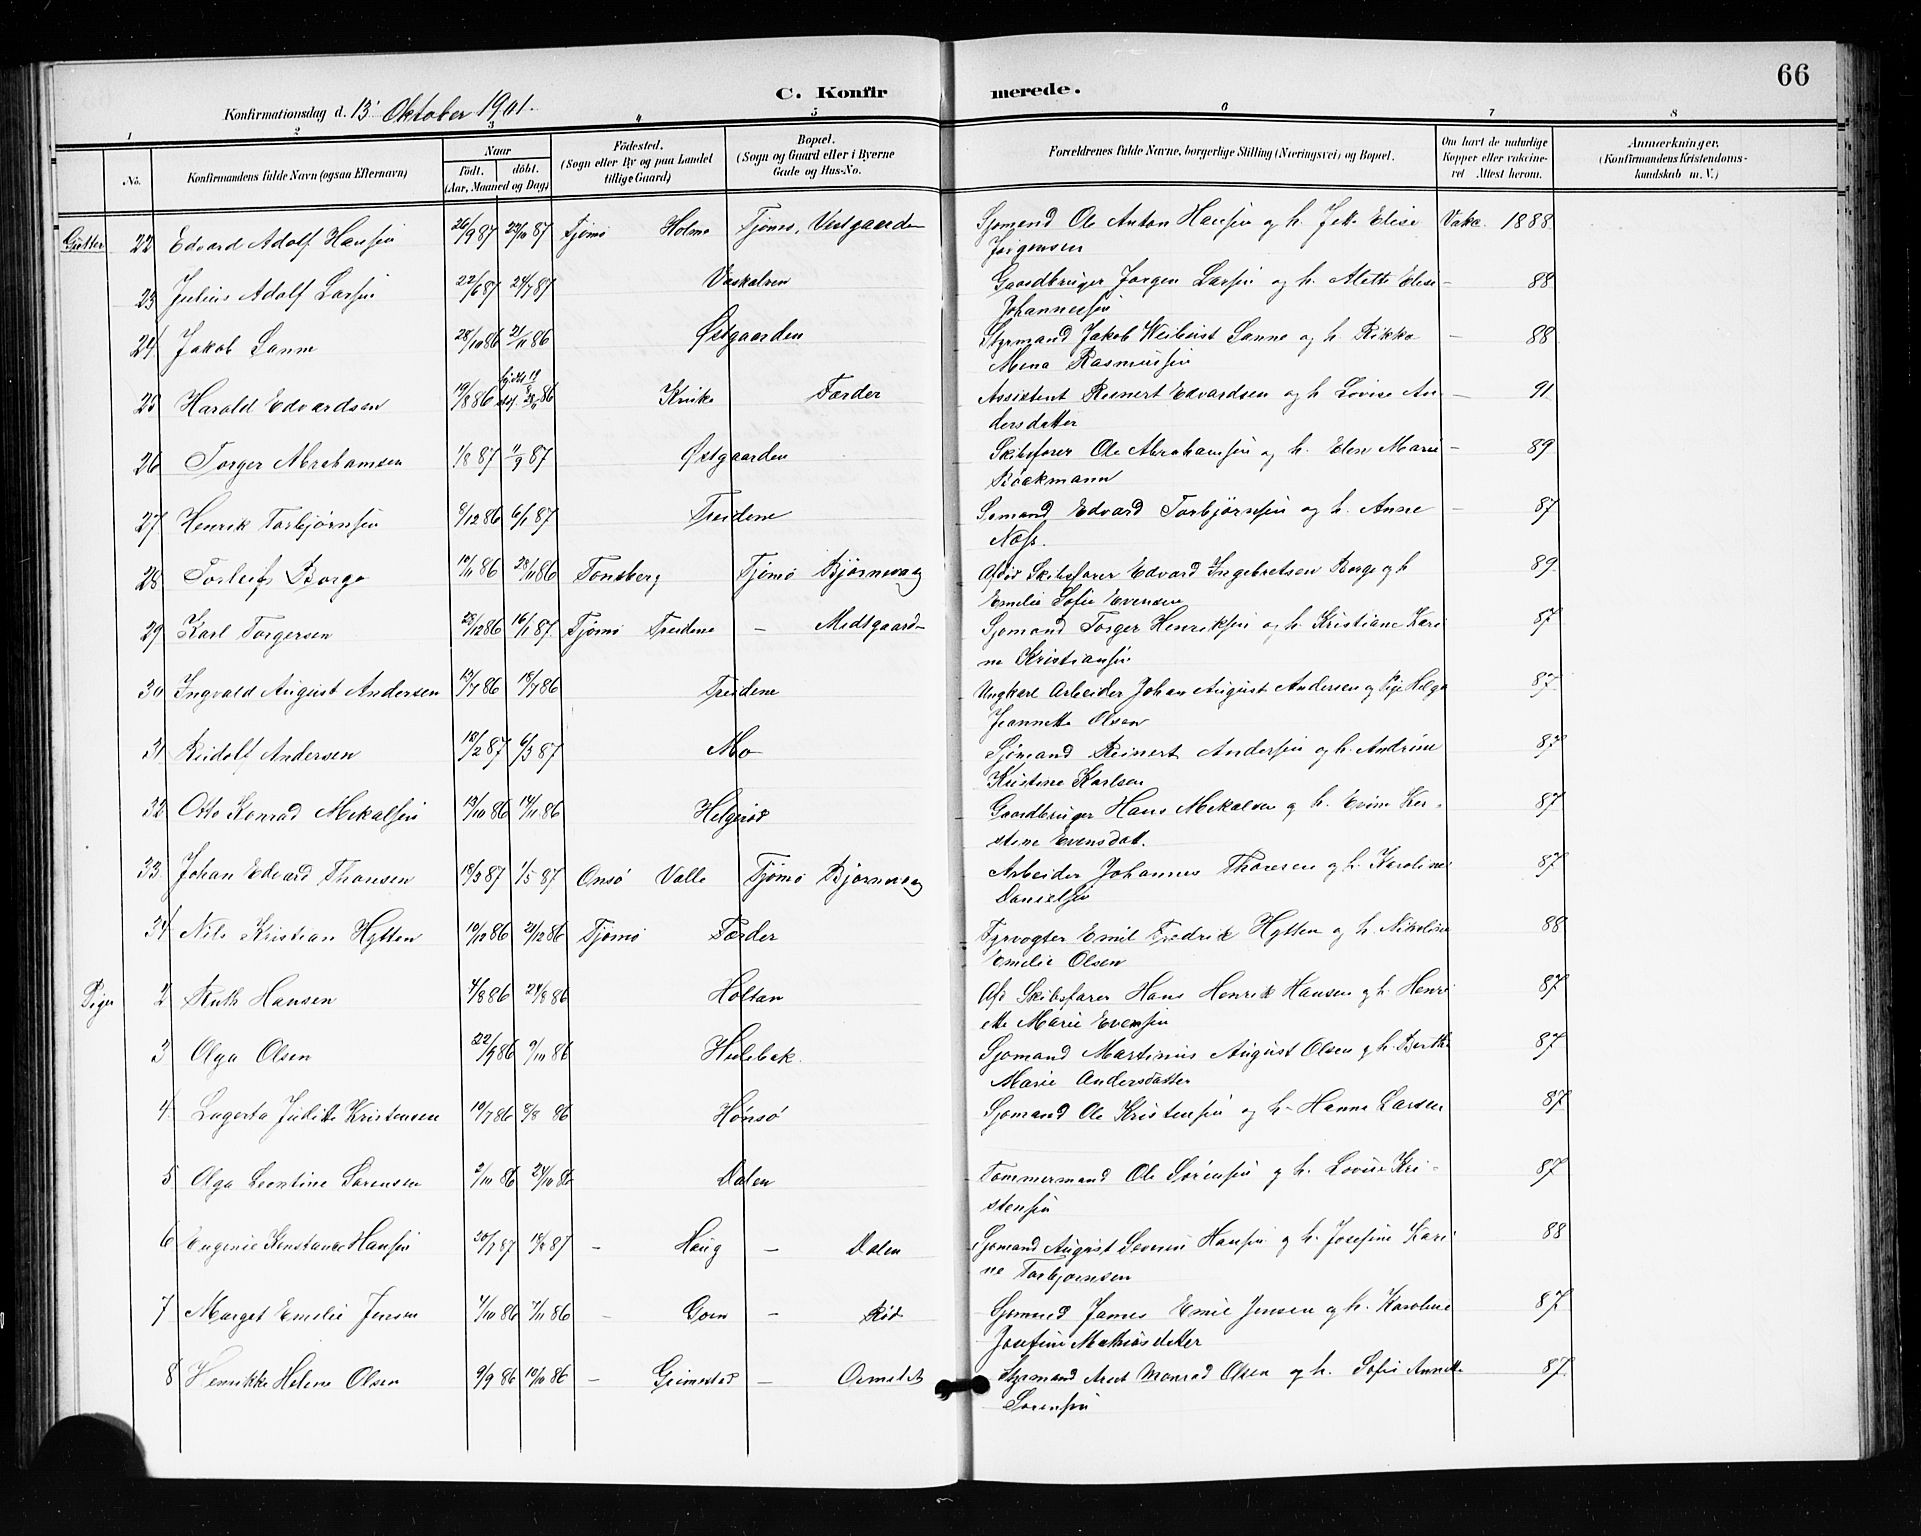 66
C. Konfirmerede.
Konfirmationsdag d. 13 Oktober 1901.
1 2 3 4 5 6 7 8
No. Konfirmandens fulde Navn (ogsaa Efternavn) Naar født. døbt. (Aar, Maaned og Dag) Fødested. (Sogn eller By og paa Landet tillige Gaard) Bopæl. (Sogn og Gaard eller i Byerne Gade og Hus-No. Forældrenes fulde Navne, borgerlige Stilling (Næringsvei) og Bopæl. Om havt de naturlige Kopper eller vaccineret Attest herom. Anmerkninger. (Konfirmandens Kristendomskundskab m. V.)
Gutter 22 Edvard Adolf Hansen 26/9 87 27/11 87 Tjømø Holmo Tjømø, Vestgaarden Sjømand Ole Anton Hansen og h. Elise Vakc. 1888
Jørgensen
23 Julius Adolf Larsen 22/6 87 24/7 87 Vaskalven Gaardbruger Jørgen Larsen og h. Alette Elise – 88
Johannesen
24 Jakob Sanne 28/10 86 21/11 86 Østgaarden Styrmand Jakob Sanne og h. Rikka – 88
Mena Rasmussen
25 Harald Edvardsen 19/8 86 Kruke Færder Assistent Reinert Edvardsen og h. Lovise An – 91
dersdatter
26 Torger Abrahamsen 1/8 87 11/9 87 Østgaarden Skibsfører Ole Abrahamsen og h. Elen Marie – 89
27 Henrik Torbjørnsen 8/12 86 6/1 87 Treidene Sømand Edvard Torbjørnsen og h. Anne – 87
Næss.
28 Torleif Borge 10/11 86 28/11 86 Tønsberg Tjømø Bjørnevaag Afdød Skibsfører Edvard Ingebretsen Borge og h 89
Emelie Sofie Evensen
29 Karl Torgersen 28/12 86 16/1 87 Tjømø Treidene – Midtgaard– Sjømand Torger Henriksen og h. Kristiane Kari 87
ne Kristiansen
30 Ingvald August Andersen 13/7 86 18/7 86 Treidene Ungkarl Arbeider Johan August Andersen og Pige Helga 87
Jeannette Olsen
31 Rudolf Andersen 12/2 87 6/3 87 Mo Sjømand Reinert Andersen og h. Andrine 87
Kristine Karlsen
32 Otto Konrad Mikalsen 13/10 86 14/11 86 Helgerød Gaardbruger Hans Mikalsen og h. Ker- 87
stine Evensdatt.
33 Johan Edvard Thoresen 19/3 87 1/5 87 Onsø Valle Tjømø Bjørnevaag Arbeider Johannes Thoresen og h. Karoline 87
Danielsen
34 Nils Kristian Hytten 10/12 86 21/12 86 Tjømø Færder Fyrvogter Emil Fredrik Hytten og h. Nikoline 88
Emelie Olsen
Piger 2 Ruth Hansen 4/8 86 24/8 86 Holtan Afd Skibsfører Hans Henrik Hansen og h. Henri 87
ette Marie Evensen
3 Olga Olsen 22/9 86 9/10 86 Hulebak. Sjømand Martinus August Olsen og h. Berthe 87
Marie Andersdatter
4. Lagerta Judithe Kristensen 10/7 86 8/8 86 Hønsø Sjømand Ole Kristensen og h. Hanna Larsen 87
5 Olga Leontine Sørensen 2/10 86 24/10 86 Dalen Tømmermand Ole Sørensen og h. Lovise Kri- 87
stensen
6 Eugenie Konstance Hansen 20/7 87 14/8 87 – Haug – Dalen Sjømand August Severin Hansen og h. Josefine Kari 88
ne Torbjørnsen
7 Marget Emelie Jensen 4/10 86 7/11 86 – Goen – Rød Sjømand James Emil Jensen og h. Karoline 87
Josefine Mathiasdatter
8 Henrikke Helene Olsen 9/9 86 10/10 86 – Grimestad – Ormelet Styrmand Olsen og h. Sofie Annette 87
Sørensen